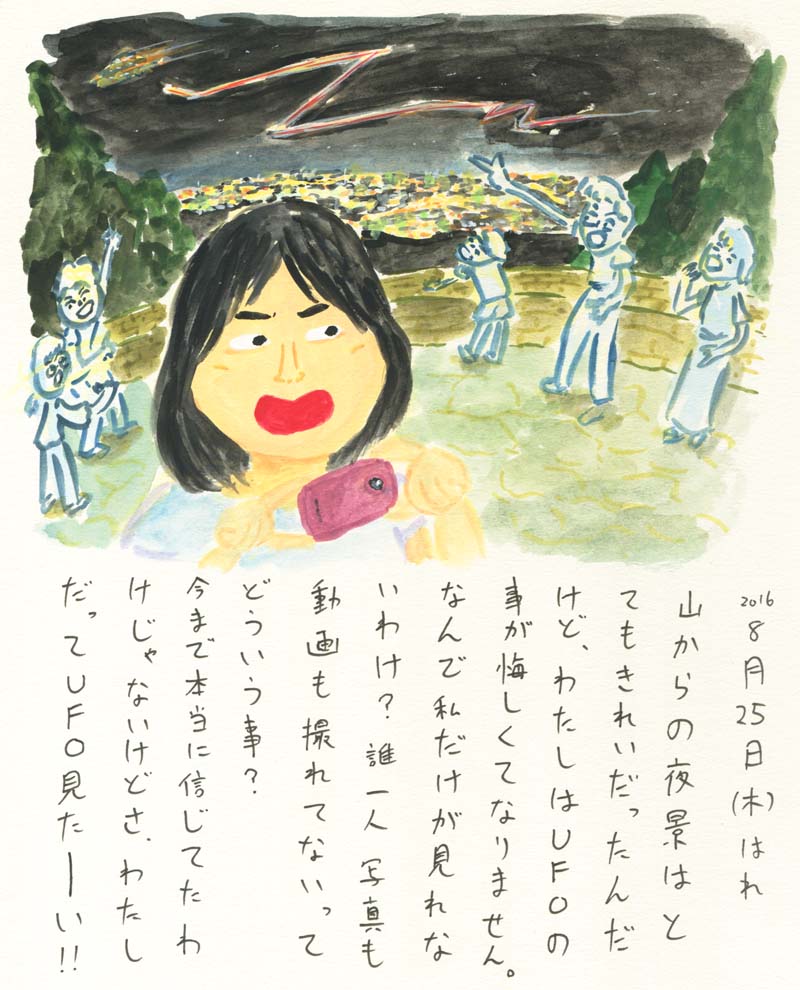 2016 8月25日(木)はれ
山からの夜景はと
てもきれいだったんだ
けど、わたしはUFOの
事が悔しくてなりません。
なんで私だけが見れな
いわけ？誰一人写真も
動画も撮れてないって
どういう事？
今まで本当に信じてたわ
けじゃないけどさ、わたし
だってUFO見たーい!!